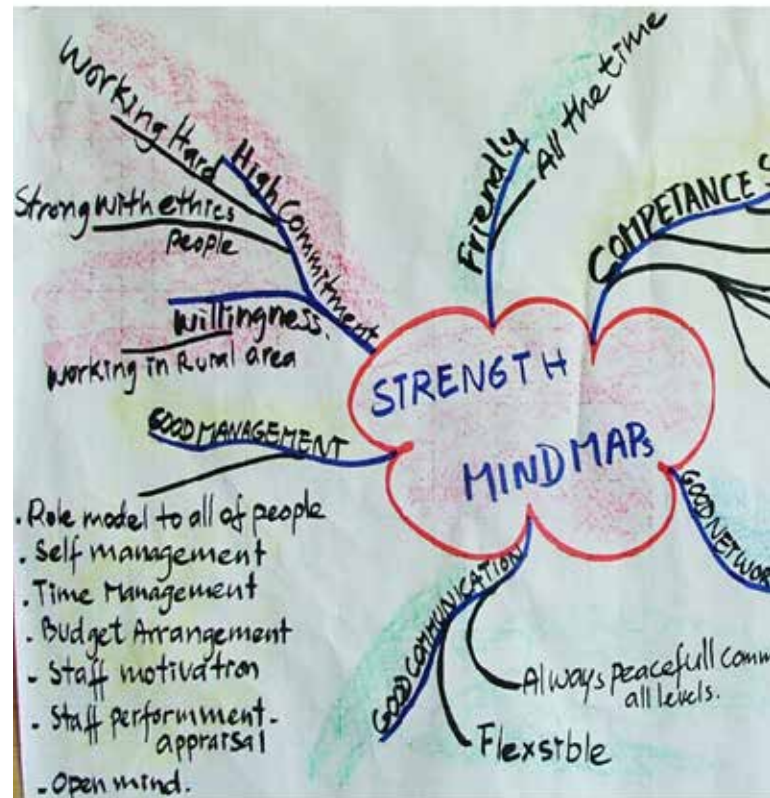 Working Hard
High Commitment
Strong with ethics
people
Willingness.
Working in Rural area
Friendly
All the time
COMPETANCE
STRENGTH
MIND MAPs
GOOD MANAGEMENT
. Role model to all of people
. Self management
. Time Management
- Budget Arrangement
- Staff motivation
- Staff performment-
appraisal
- Open mind.
GOOD COMMUNICATION
Always peacefull comm
all levels.
Flexsible
GOOD NETWOR